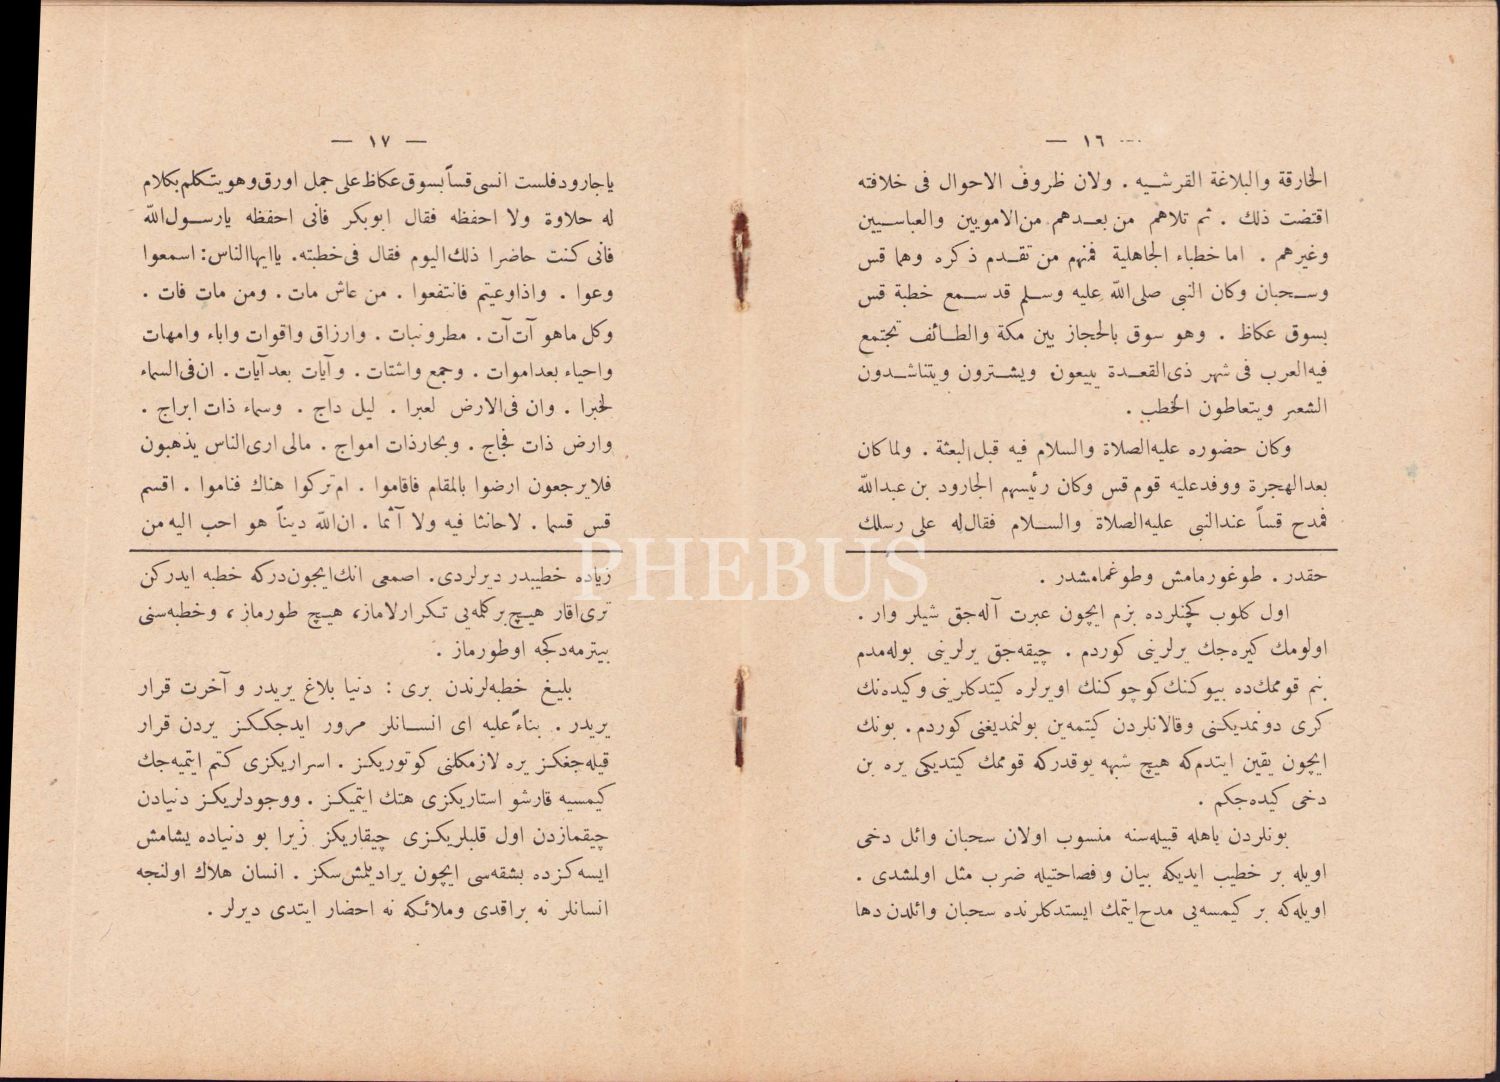 — ١٦ —
الخارقة والبلاغة القرشيه . ولان ظروف الاحوال فى خلافته
اقتضت ذلك . ثم تلاهم من بعدهم من الامويين والعباسيين
وغيرهم . اما خطباء الجاهلية فمنهم من تقدم ذكره وهما قس
وسحبان وكان النبى صلى الله عليه وسلم قد سمع خطبة قس
بسوق عكاظ . وهو سوق بالحجاز بين مكة والطائف تجتمع
فيه العرب فى شهر ذى القعدة يبيعون ويشترون ويتناشدون
الشعر ويتعاطون الخطب .
وكان حضوره عليه الصلاة والسلام فيه قبل البعثة . ولما كان
بعد الهجرة ووفد عليه قوم قس وكان رئيسهم الجارود بن عبدالله
فمدح قساً عند النبى عليه الصلاة والسلام فقال له على رسلك
حقدر . طوغورمامش وطوغمامشدر .
اول كلوب كچنلرده بزم ايچون عبرت آله جق شيلر وار .
اولومك كيره جك يرلرينى كوردم . چيقه جق يرلرينى بوله مدم
بنم قوممك ده بيوكنك كوچوكنك اويرلره كيتدكلرينى وكيده نك
كرى دونمديكنى وقالانلردن كيتمه ين بولنمديغنى كوردم . بونك
ايچون يقين ايتدم كه هيچ شبهه يوقدركه قوممك كيتديكى يره بن
دخى كيده جكم .
بونلردن باهله قبيله سنه منسوب اولان سحبان وائل دخى
اويله بر خطيب ايديكه بيان وفصاحتيله ضرب مثل اولمشدى .
اويله كه بر كيمسه يى مدح ايتمك ايستدكلرنده سحبان وائلدن دها
— ١٧ —
ياجارود فلست انسى قساً بسوق عكاظ على جمل اورق وهو يتكلم بكلام
له حلاوة ولا احفظه فقال ابوبكر فانى احفظه يارسول الله
فانى كنت حاضرا ذلك اليوم فقال فى خطبته . ياايها الناس : اسمعوا
وعوا . واذا وعيتم فانتفعوا . من عاش مات . ومن مات فات .
وكل ماهو آت آت . مطر ونبات . وارزاق واقوات واباء وامهات
واحياء بعد اموات . وجمع واشتات . وآيات بعد آيات . ان فى السماء
لخبرا . وان فى الارض لعبرا . ليل داج . وسماء ذات ابراج .
وارض ذات فجاج . وبحار ذات امواج . مالى ارى الناس يذهبون
فلا يرجعون ارضوا بالمقام فاقاموا . ام تركوا هناك فناموا . اقسم
قس قسما . لا حانثا فيه ولا آثما . ان الله ديناً هو احب اليه من
زياده خطيبدر ديرلردى . اصمعى انك ايچون دركه خطبه ايدركن
ترى اقار هيچ بر كلمه يى تكرارلاماز ، هيچ طورماز ، وخطبه سنى
بيترمه دكجه اوطورماز .
بليغ خطبه لرندن برى : دنيا بلاغ يريدر و آخرت قرار
يريدر . بناءً عليه اى انسانلر مرور ايدجككز يردن قرار
قيله جغكز يره لازمكلنى كوتوريكز . اسراريكزى كتم ايتميه جك
كيمسيه قارشو استاريكزى هتك ايتميكز . ووجودلريكز دنيادن
چيقمازدن اول قلبلريكزى چيقاريكز زيرا بو دنياده يشامش
ايسه كزده بشقه سى ايچون يراديلمش سكز . انسان هلاك اولنجه
انسانلر نه براقدى وملائكه نه احضار ايتدى ديرلر .
PHEBUS